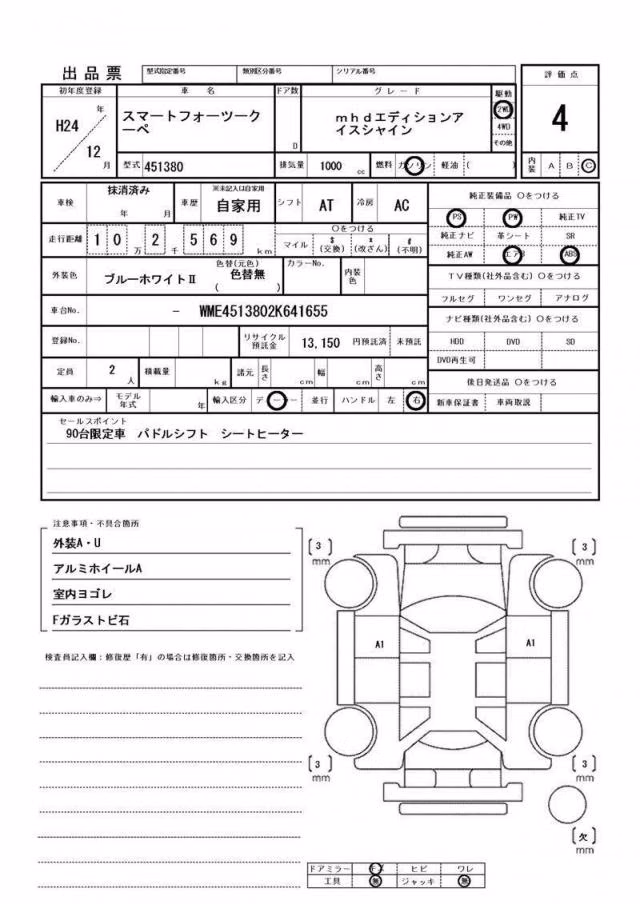 出品票 型式指定番号 類別区分番号 シリアル番号 評価点
初年度登録 車名 ドア数 グレード 駆動
H24 年 スマートフォーツークーペ D mhdエディションアイスシャイン 2WD 4WD その他 4
12 月 型式 451380 排気量 1000 cc 燃料 ガソリン 軽油 ( ) 内装 A B C
車検 抹消済み 年 月 車歴 ※未記入は自家用 自家用 シフト AT 冷房 AC
走行距離 1 0 万 2 千 5 6 9 km ○をつける マイル $(交換) *(改ざん) #(不明)
外装色 ブルーホワイトⅡ 色替(元色) 色替無 ( ) カラーNo. 内装色
車台No. － WME4513802K641655
登録No. リサイクル預託金 13,150 円預託済 未預託
定員 2 人 積載量 kg 諸元 長さ cm 幅 cm 高さ cm
輸入車のみ⇒ モデル年式 年 輸入区分 ディーラー 並行 ハンドル 左 右
純正装備品 ○をつける
PS PW 純正TV
純正ナビ 革シート SR
純正AW エアB ABS
TV種類(社外品含む) ○をつける
フルセグ ワンセグ アナログ
ナビ種類(社外品含む) ○をつける
HDD DVD SD
DVD再生可
後日発送品 ○をつける
新車保証書 車両取説
セールスポイント
90台限定車 パドルシフト シートヒーター
注意事項・不具合箇所
外装A・U
アルミホイールA
室内ヨゴレ
Fガラストビ石
検査員記入欄:修復歴「有」の場合は修復箇所・交換箇所を記入
[3] mm [3] mm
A1 A1
[3] mm [3] mm
[欠] mm
ドアミラー キズ ヒビ ワレ
工具 無 ジャッキ 無